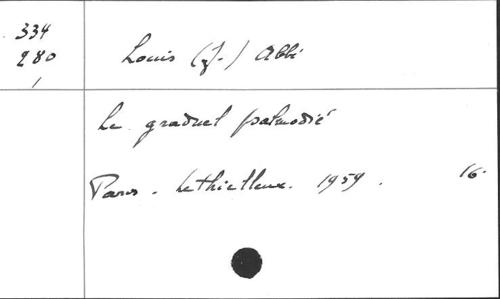 334
280
1
Louis (J.) Abbé
Le graduel psalmodié
Paris. Lethielleux. 1959. 16.